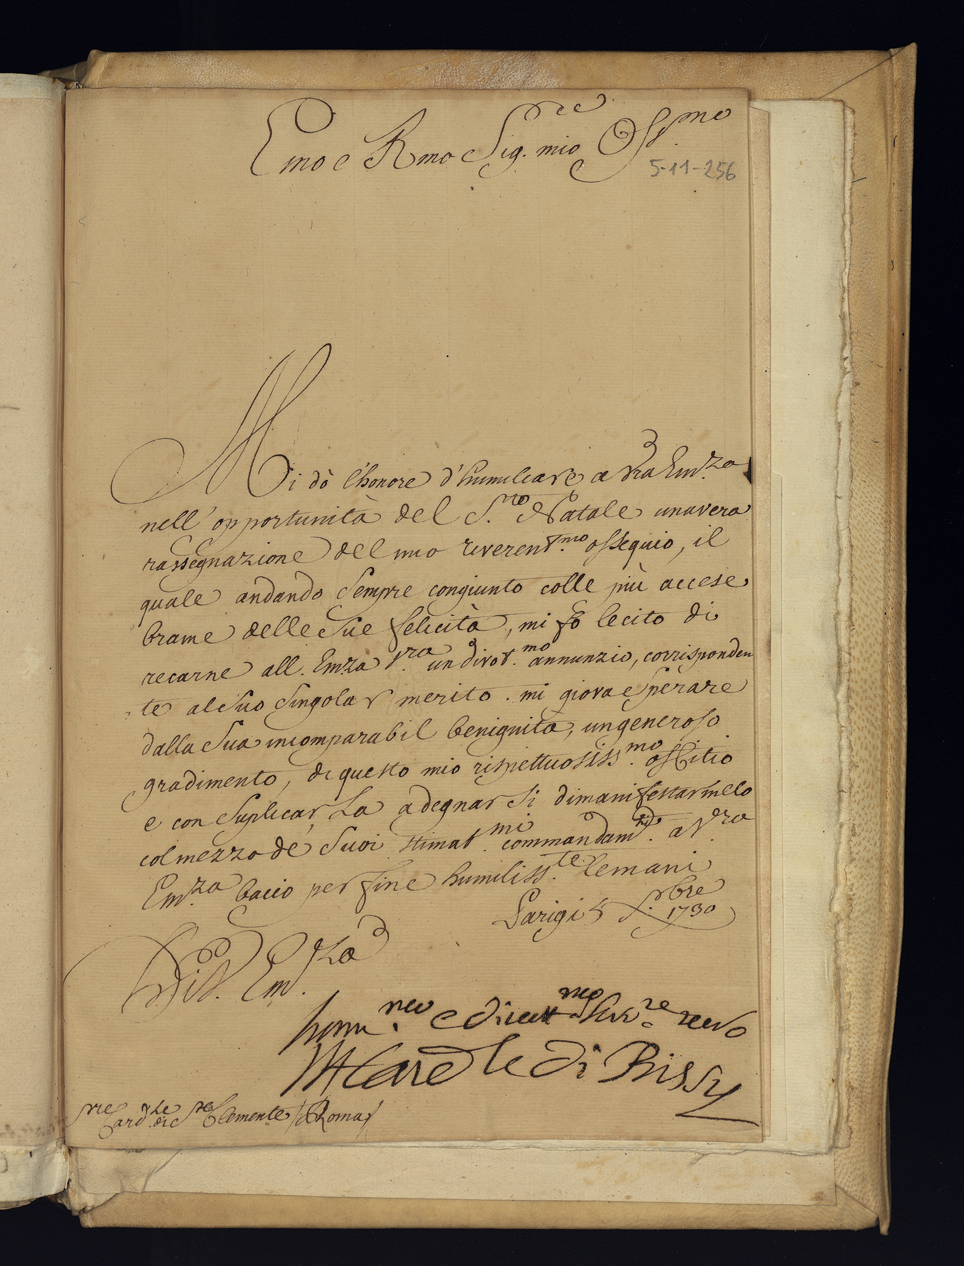 Emo e Rmo Sig.re mio Oss.mo
5-11-256
Mi dò l'honore d'humiliare a Vra Em.za
nell' opportunità del S.mo Natale una vera
rassegnazione del mio reverent.mo ossequio, il
quale andando sempre congiunto colle più accese
brame delle Sue felicità, mi fo lecito di
recarne all. Emza V.ra un divot.mo annunzio, corrisponden
te al suo singolar merito. mi giova sperare
dalla Sua incomparabil benignità, un generoso
gradimento, di questo mio rispettuosiss.mo offitio
e con suplicarLa a degnarsi di manifestarmelo
col mezzo de Suoi stimat.mi commandam.ti a Vra
Em.za bacio per fine humiliss.te le mani
Parigi 5 X.bre 1730
Di V. Em.za
hum.mo e divot.mo Ser.re vero
Il Card.le di Bissy
Sre Card.le di S. Clemente /Roma/